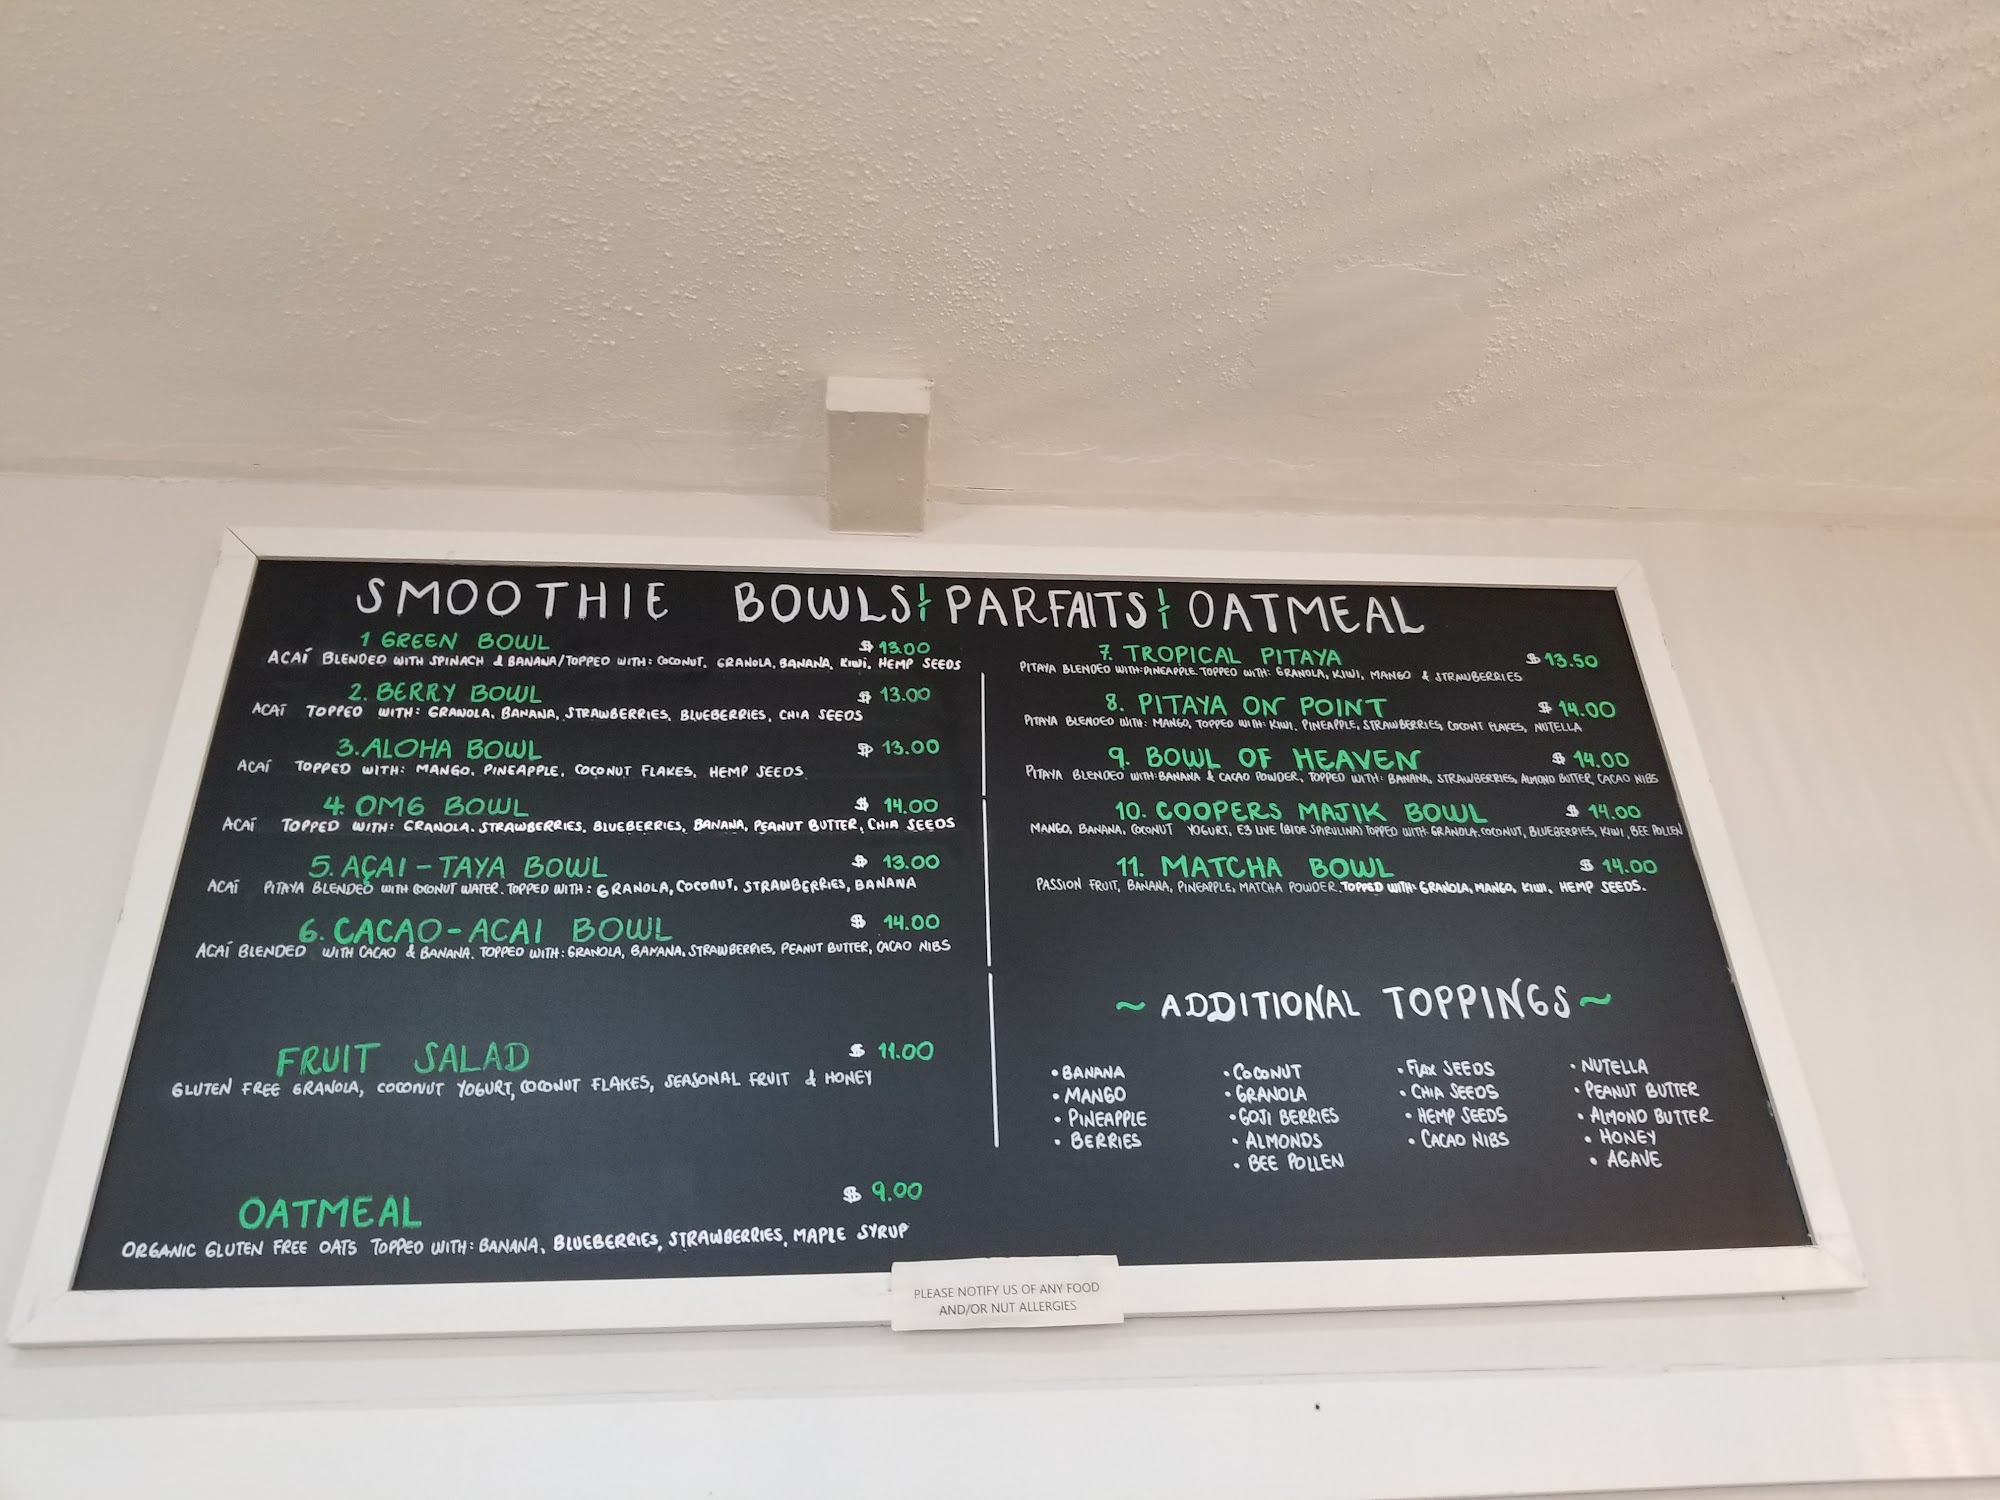 SMOOTHIE BOWLS & PARFAITS & OATMEAL
1 GREEN BOWL $ 13.00
ACAÍ BLENDED WITH SPINACH & BANANA/TOPPED WITH: COCONUT. GRANOLA, BANANA, KIWI, HEMP SEEDS
2. BERRY BOWL $ 13.00
ACAÍ TOPPED WITH: GRANOLA, BANANA, STRAWBERRIES, BLUEBERRIES, CHIA SEEDS
3. ALOHA BOWL $ 13.00
ACAÍ TOPPED WITH: MANGO, PINEAPPLE, COCONUT FLAKES, HEMP SEEDS
4. OMG BOWL $ 14.00
ACAÍ TOPPED WITH: GRANOLA. STRAWBERRIES, BLUEBERRIES, BANANA, PEANUT BUTTER, CHIA SEEDS
5. AÇAI-TAYA BOWL $ 13.00
ACAÍ PITAYA BLENDED WITH COCONUT WATER. TOPPED WITH: GRANOLA, COCONUT, STRAWBERRIES, BANANA
6. CACAO-ACAI BOWL $ 14.00
ACAÍ BLENDED WITH CACAO & BANANA. TOPPED WITH: GRANOLA, BANANA, STRAWBERRIES, PEANUT BUTTER, CACAO NIBS
FRUIT SALAD $ 11.00
GLUTEN FREE GRANOLA, COCONUT YOGURT, COCONUT FLAKES, SEASONAL FRUIT & HONEY
OATMEAL $ 9.00
ORGANIC GLUTEN FREE OATS TOPPED WITH: BANANA, BLUEBERRIES, STRAWBERRIES, MAPLE SYRUP
7. TROPICAL PITAYA $ 13.50
PITAYA BLENDED WITH: PINEAPPLE. TOPPED WITH: GRANOLA, KIWI, MANGO & STRAWBERRIES
8. PITAYA ON POINT $ 14.00
PITAYA BLENDED WITH: MANGO, TOPPED WITH: KIWI. PINEAPPLE, STRAWBERRIES, COCONT FLAKES, NUTELLA
9. BOWL OF HEAVEN $ 14.00
PITAYA BLENDED WITH: BANANA & CACAO POWDER, TOPPED WITH: BANANA, STRAWBERRIES, ALMOND BUTTER, CACAO NIBS
10. COOPERS MAJIK BOWL $ 14.00
MANGO, BANANA, COCONUT YOGURT, E3 LIVE (BLUE SPIRULINA) TOPPED WITH: GRANOLA. COCONUT, BLUEBERRIES, KIWI, BEE POLLEN
11. MATCHA BOWL $ 14.00
PASSION FRUIT, BANANA, PINEAPPLE, MATCHA POWDER. TOPPED WITH: GRANOLA, MANGO, KIWI, HEMP SEEDS.
~ ADDITIONAL TOPPINGS ~
• BANANA
• MANGO
• PINEAPPLE
• BERRIES
• COCONUT
• GRANOLA
• GOJI BERRIES
• ALMONDS
• BEE POLLEN
• FLAX SEEDS
• CHIA SEEDS
• HEMP SEEDS
• CACAO NIBS
• NUTELLA
• PEANUT BUTTER
• ALMOND BUTTER
• HONEY
• AGAVE
PLEASE NOTIFY US OF ANY FOOD
AND/OR NUT ALLERGIES